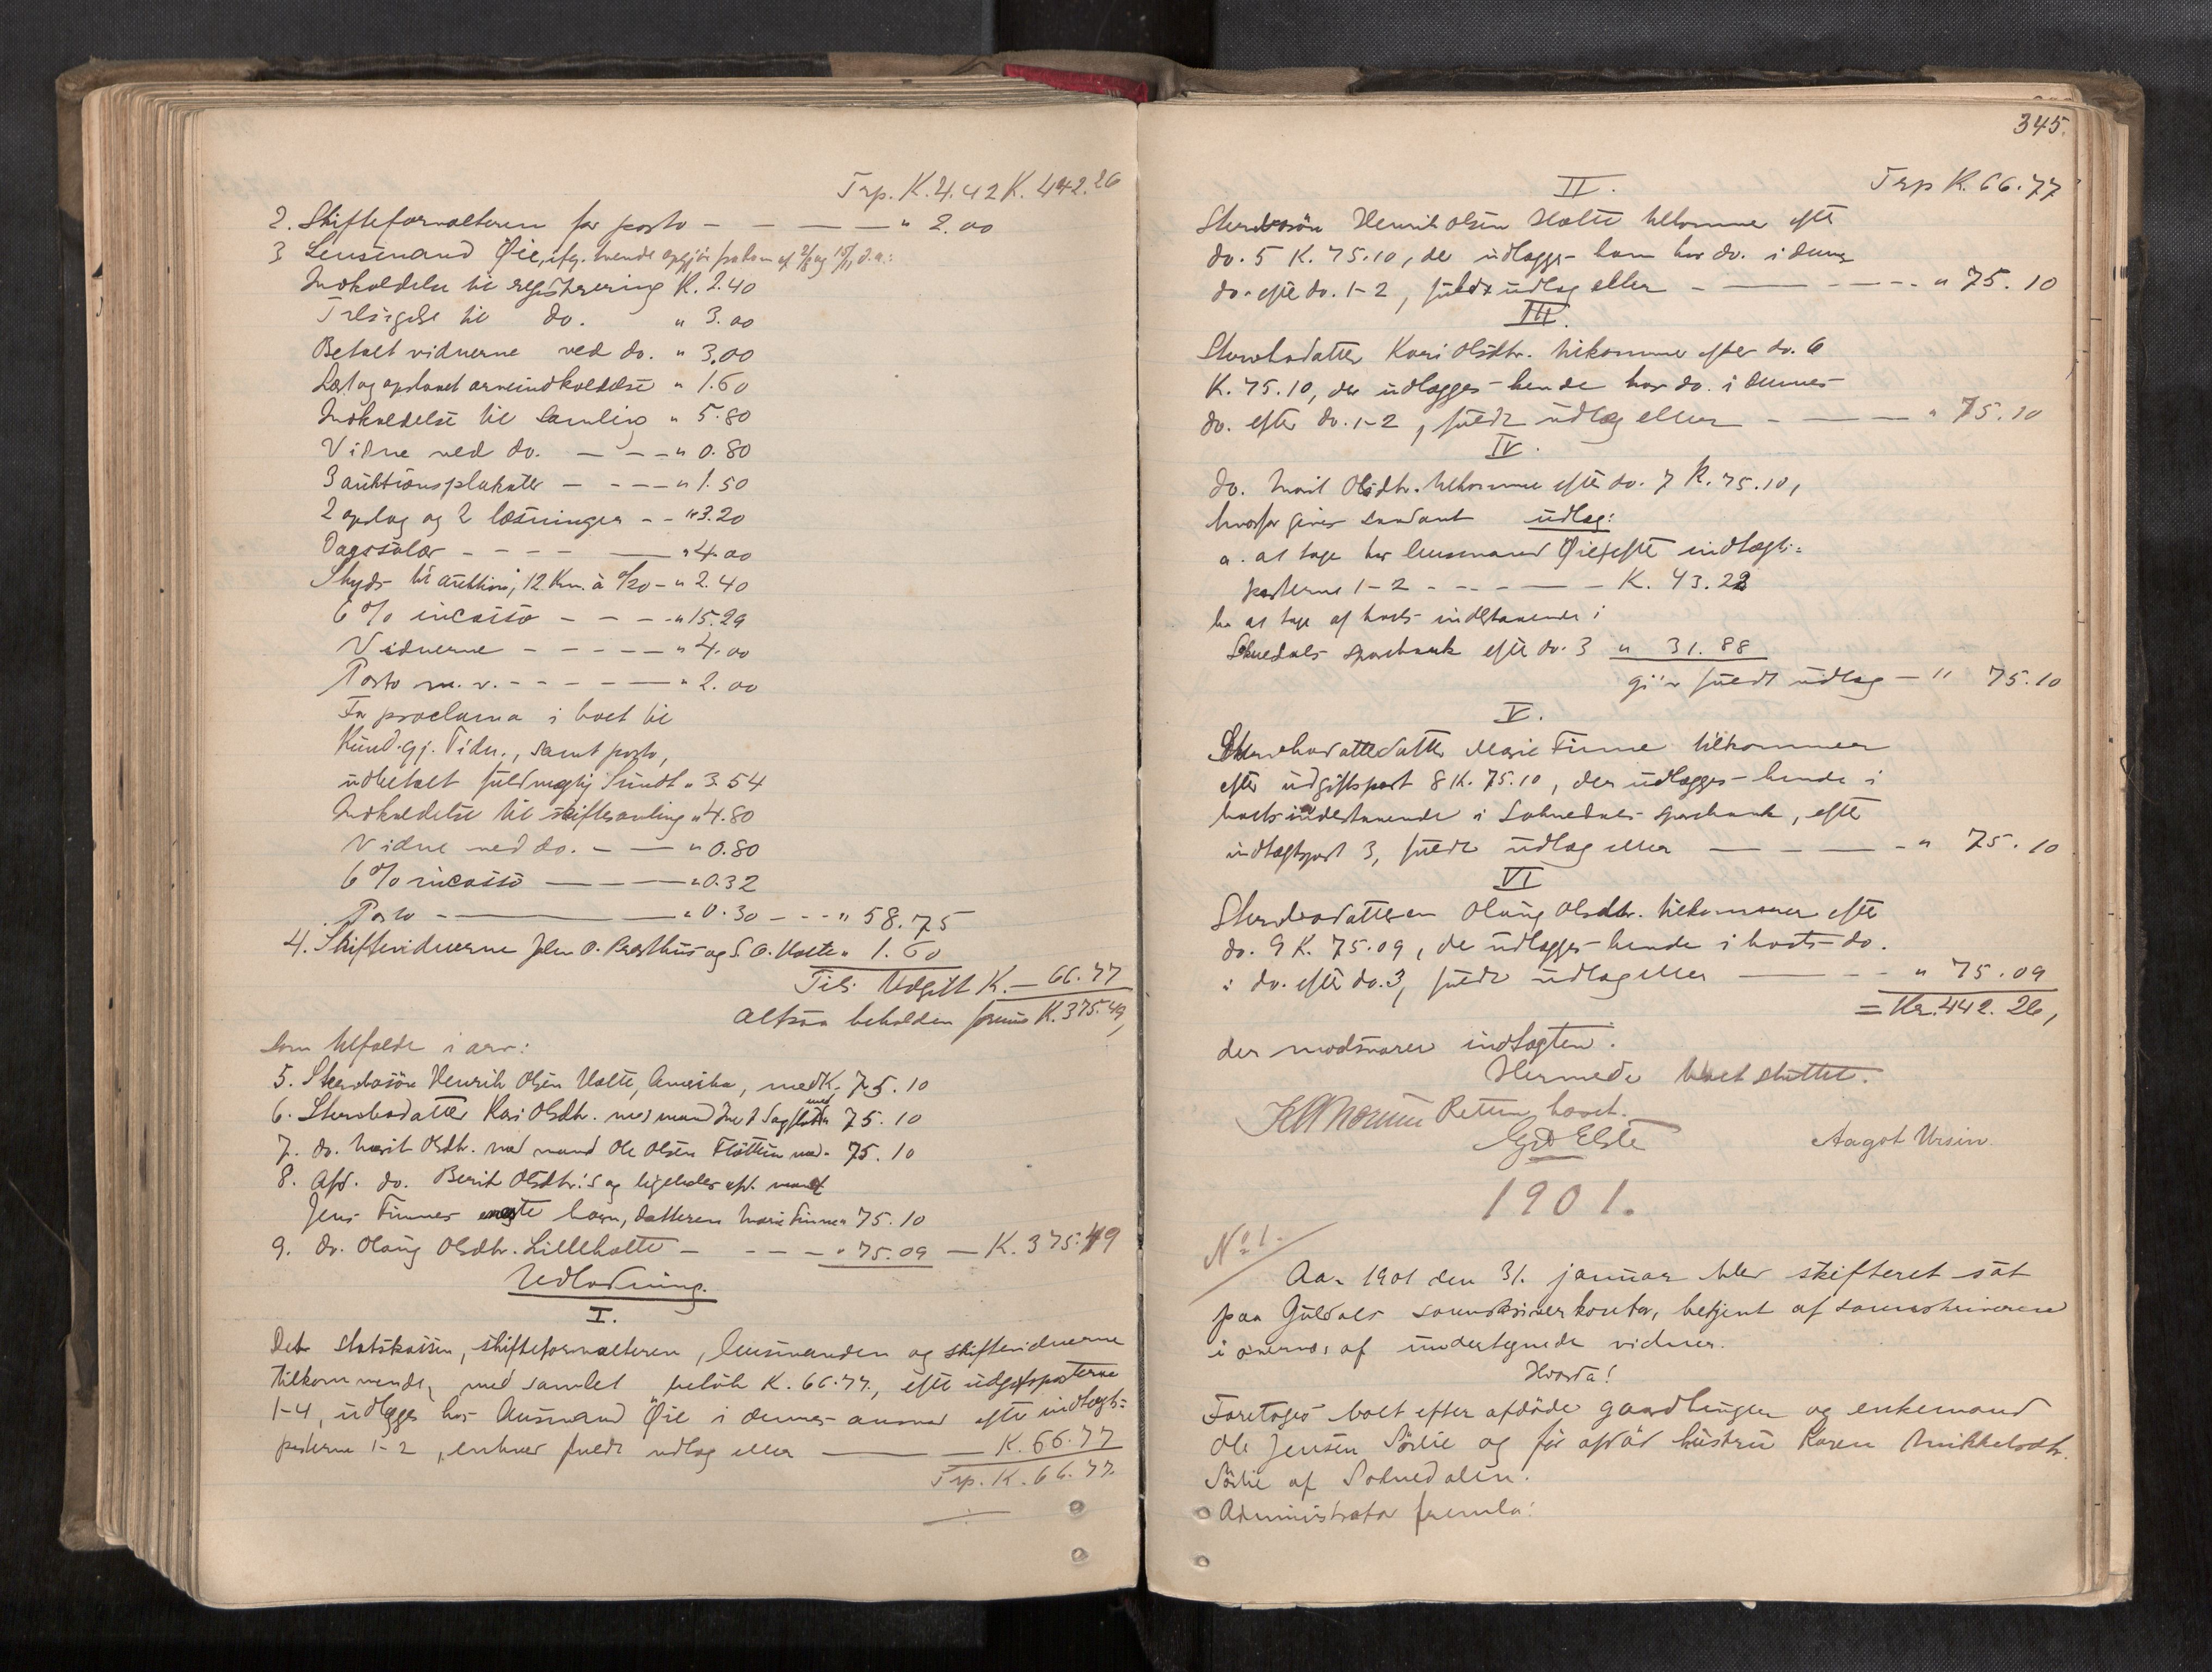 Trp. K. 4.42 K. 442.26
2. Skifteforvalteren for porto - - - - " 2.00
3 Lensmand Øie, ifg. tvende opgjør av 2/8 og 15/11 d.a.:
Indkaldelse til registrering K. 2.40
Tilsigelse til do. " 3.00
Betalt vidnerne ved do. " 3.00
Læst og opslaaet arveindkaldelse " 1.60
Indkaldelse til samling " 5.80
Vidne ved do. - - - " 0.80
3 auktionsplakater - - - " 1.50
2 opslag og 2 læsninger - - " 3.20
Dagssalær - - - - " 4.00
Skyds til auktion, 12 Km. à 0/20 - " 2.40
6 % incasso - - - " 15.29
Vidnerne - - - - - " 4.00
Porto m. v. - - - - - " 2.00
For proclama i boet til
Kund.gj. Tidn., samt porto,
udbetalt fuldmægtig Sundt " 3.54
Indkaldelse til skiftesamling " 4.80
Vidne ved do. - - " 0.80
6 % incasso - - - " 0.32
Porto - - - " 0.30 - - - " 58.75
4. Skiftevidnerne John O. Presthus og S. O. Holte " 1.60
Tils. Udgift K. - 66.77
altsaa beholden K. 375.49,
som tilfalde i arv:
5. Sterbosön Henrik Olsen Holte, Amerika, med K. 75.10
6. Sterbodatter Kari Olsdtr. med mand med " 75.10
7. do. Marit Olsdtr. med mand Ole Olsen Flöttum med " 75.10
8. Afd. do. Berit Olsdtr.'s og ligeledes afd. mand
Jens Finnes eneste barn, datteren Marie Finne " 75.10
9. do. Olaug Olsdtr. Lilleholte - - - - " 75.09 - K. 375.49
Udlodning.
I.
Det statskassen, skifteforvalteren, lensmanden og skiftevidnerne
tilkommende, med samlet beløb K. 66.77, efter udgiftsposterne
1-4, udlægges hos lensmand Øie i dennes ansvar efter indtægts-
posterne 1-2, enhver fuldt udlæg eller - - K. 66.77
Trp. K. 66.77.
345.
II. Trp K. 66.77
Sterbosön Henrik Olsen Holte tilkommer efter
do. 5 K. 75.10, der udlægges ham hos do. i dennes
do. efter do. 1-2, fuldt udlæg eller - - - - " 75.10
III.
Sterbodatter Kari Olsdtr. tilkommer efter do. 6
K. 75.10, der udlægges hende hos do. i dennes
do. efter do. 1-2, fuldt udlæg eller - - - " 75.10
IV.
do. Marit Olsdtr. tilkommer efter do. 7 K. 75.10,
hvorfor gives saadant udlæg:
a. at tage hos lensmand Øie efter indtægts-
posterne 1-2 - - - - - K. 43.22
b. at tage af boets indestaaende i
Soknedals sparebank efter do. 3 " 31.88
gi'r fuldt udlæg - " 75.10
V.
Sterbodatterdatter Marie Finne tilkommer
efter udgiftspost 8 K. 75.10, der udlægges hende i
boets indestaaende i Soknedals sparebank, efter
indtægtspost 3, fuldt udlæg eller - - - - " 75.10
VI
Sterbodatteren Olaug Olsdtr. tilkommer efter
do. 9 K. 75.09, der udlægges hende i boets do.
i do. efter do. 3, fuldt udlæg eller - - - " 75.09
= Kr. 442.26,
der modsvarer indtægten.
Hermede boet sluttet.
Retten hævet.
Aagot Ursin.
1901.
No 1.
Aar 1901 den 31. januar blev skifteret sat
paa Guldals sorenskriverkontor, betjent af sorenskriveren
i overvær af undertegnede vidner.
Hvorda!
Foretoges boet efter afdöde gaardbruger og enkemand
Ole Jensen Sörlie og för afdöd hustru Karen Mikkelsdtr.
Sörlie af Soknedalen.
Administrator fremla: